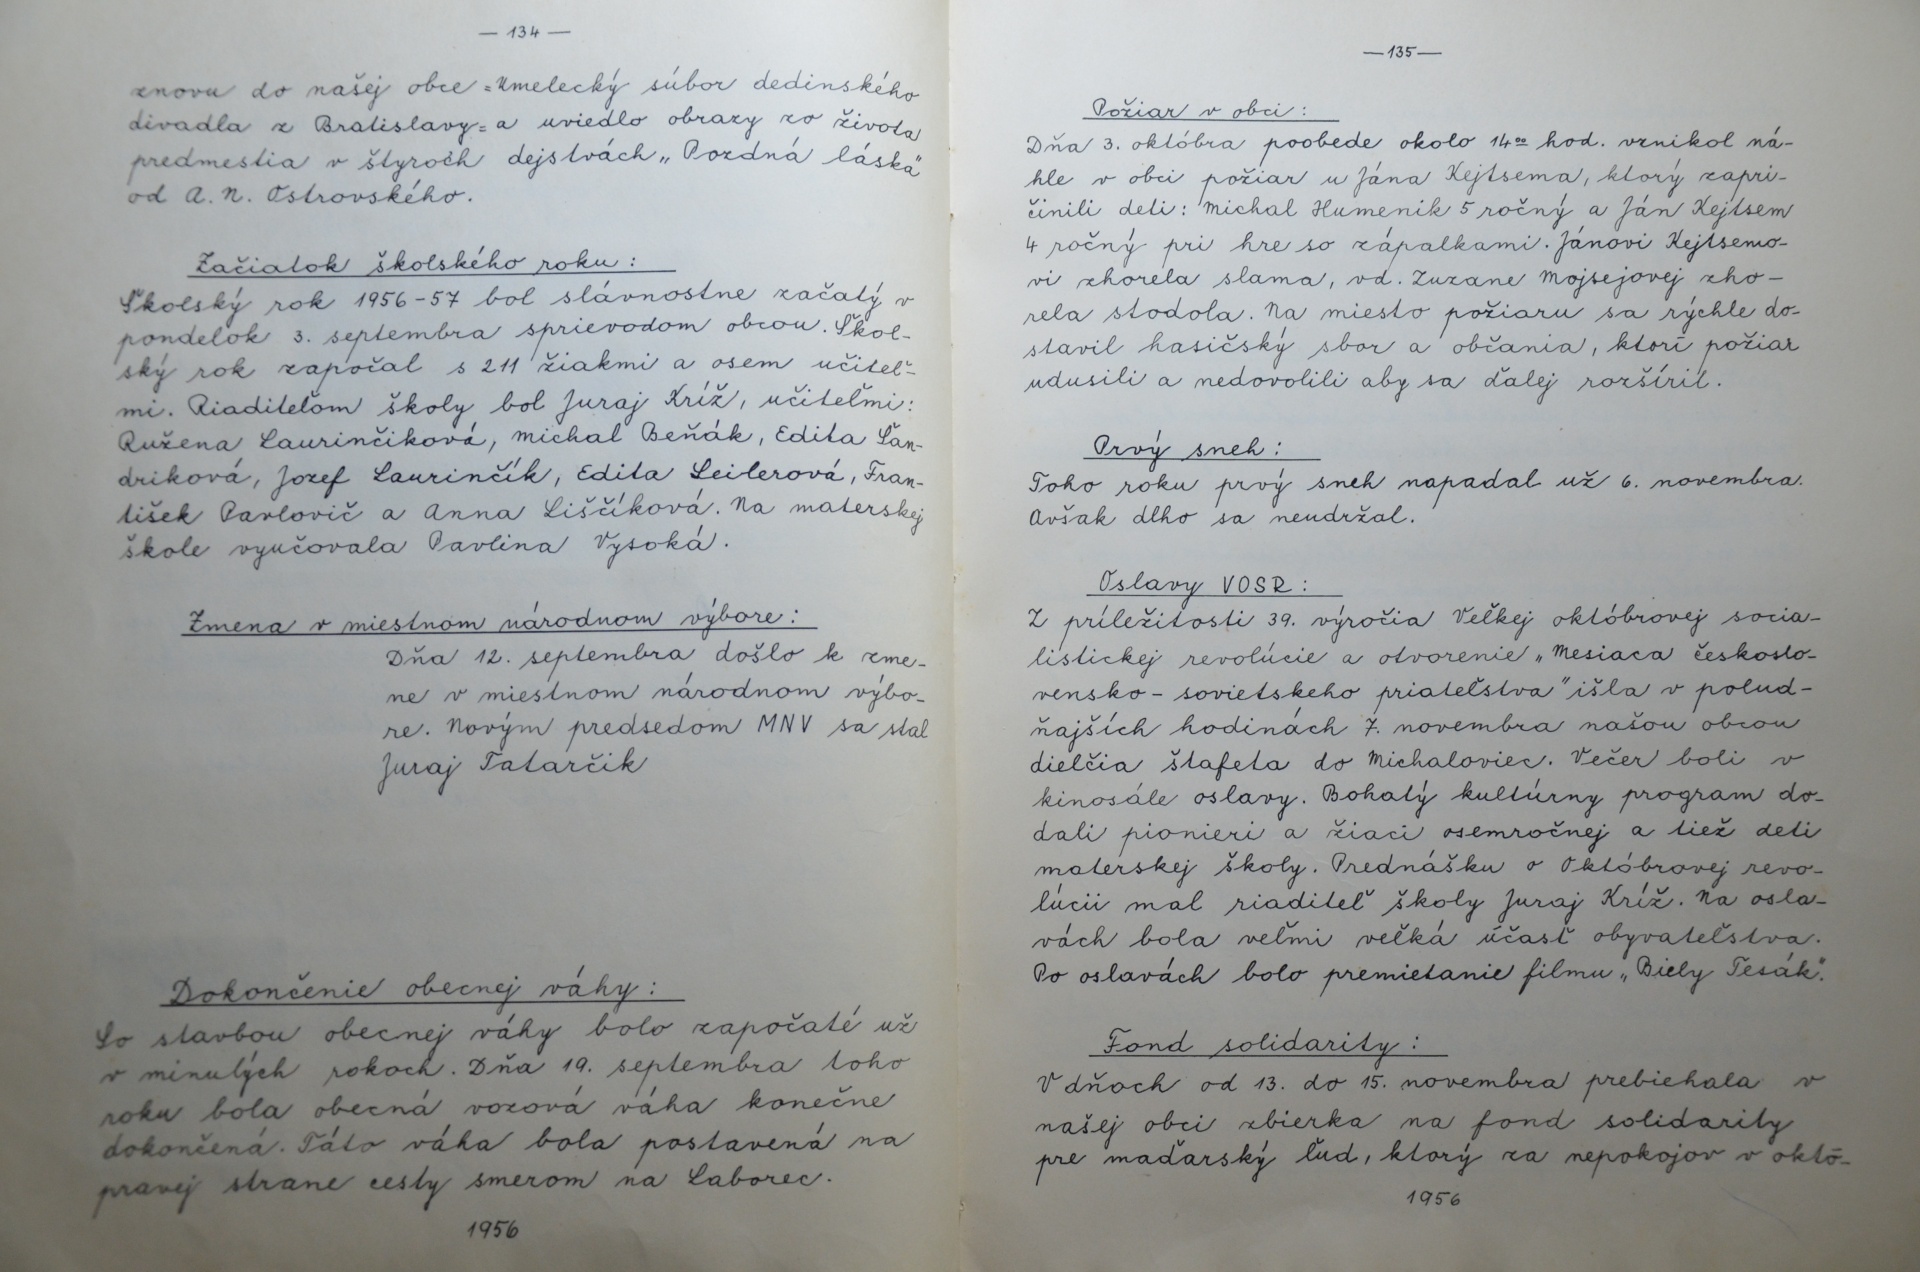 — 134 —
znovu do našej obce =Umelecký súbor dedinského
divadla z Bratislavy= a uviedlo obrazy zo života
predmestia v štyroch dejstvách „Pozdná láska"
od A. N. Ostrovského.
Začiatok školského roku:
Školský rok 1956-57 bol slávnostne začatý v
pondelok 3. septembra sprievodom obcou. Škol-
ský rok započal s 211 žiakmi a osem učiteľ-
mi. Riaditeľom školy bol Juraj Kríž, učiteľmi:
Ružena Laurinčiková, Michal Beňák, Edita Šan-
driková, Jozef Laurinčík, Edita Seilerová, Fran-
tišek Pavlovič a Anna Liščíková. Na materskej
škole vyučovala Pavlina Vysoká.
Zmena v miestnom národnom výbore:
Dňa 12. septembra došlo k zme-
ne v miestnom národnom výbo-
re. Novým predsedom MNV sa stal
Juraj Tatarčik
Dokončenie obecnej váhy:
So stavbou obecnej váhy bolo započaté už
v minulých rokoch. Dňa 19. septembra toho
roku bola obecná vozová váha konečne
dokončená. Táto váha bola postavená na
pravej strane cesty smerom na Laborec.
1956
— 135 —
Požiar v obci:
Dňa 3. októbra poobede okolo 14⁰⁰ hod. vznikol ná-
hle v obci požiar u Jána Kejtsema, ktorý zapri-
činili deti: Michal Humenik 5 ročný a Ján Kejtsem
4 ročný pri hre so zápalkami. Jánovi Kejtsemo-
vi zhorela slama, vd. Zuzane Mojsejovej zho-
rela stodola. Na miesto požiaru sa rýchle do-
stavil hasičský sbor a občania, ktorí požiar
udusili a nedovolili aby sa ďalej rozšíril.
Prvý sneh:
Toho roku prvý sneh napadal už 6. novembra.
Avšak dlho sa neudržal.
Oslavy VOSR:
Z príležitosti 39. výročia Veľkej októbrovej socia-
listickej revolúcie a otvorenie „Mesiaca českoslo-
vensko - sovietskeho priateľstva" išla v polud-
ňajších hodinách 7. novembra našou obcou
dielčia štafeta do Michaloviec. Večer boli v
kinosále oslavy. Bohatý kultúrny program do-
dali pionieri a žiaci osemročnej a tiež deti
materskej školy. Prednášku o Októbrovej revo-
lúcii mal riaditeľ školy Juraj Kríž. Na osla-
vách bola veľmi veľká účasť obyvateľstva.
Po oslavách bolo premietanie filmu „Biely Tesák".
Fond solidarity:
V dňoch od 13. do 15. novembra prebiehala v
našej obci zbierka na fond solidarity
pre maďarský ľud, ktorý za nepokojov v októ-
1956